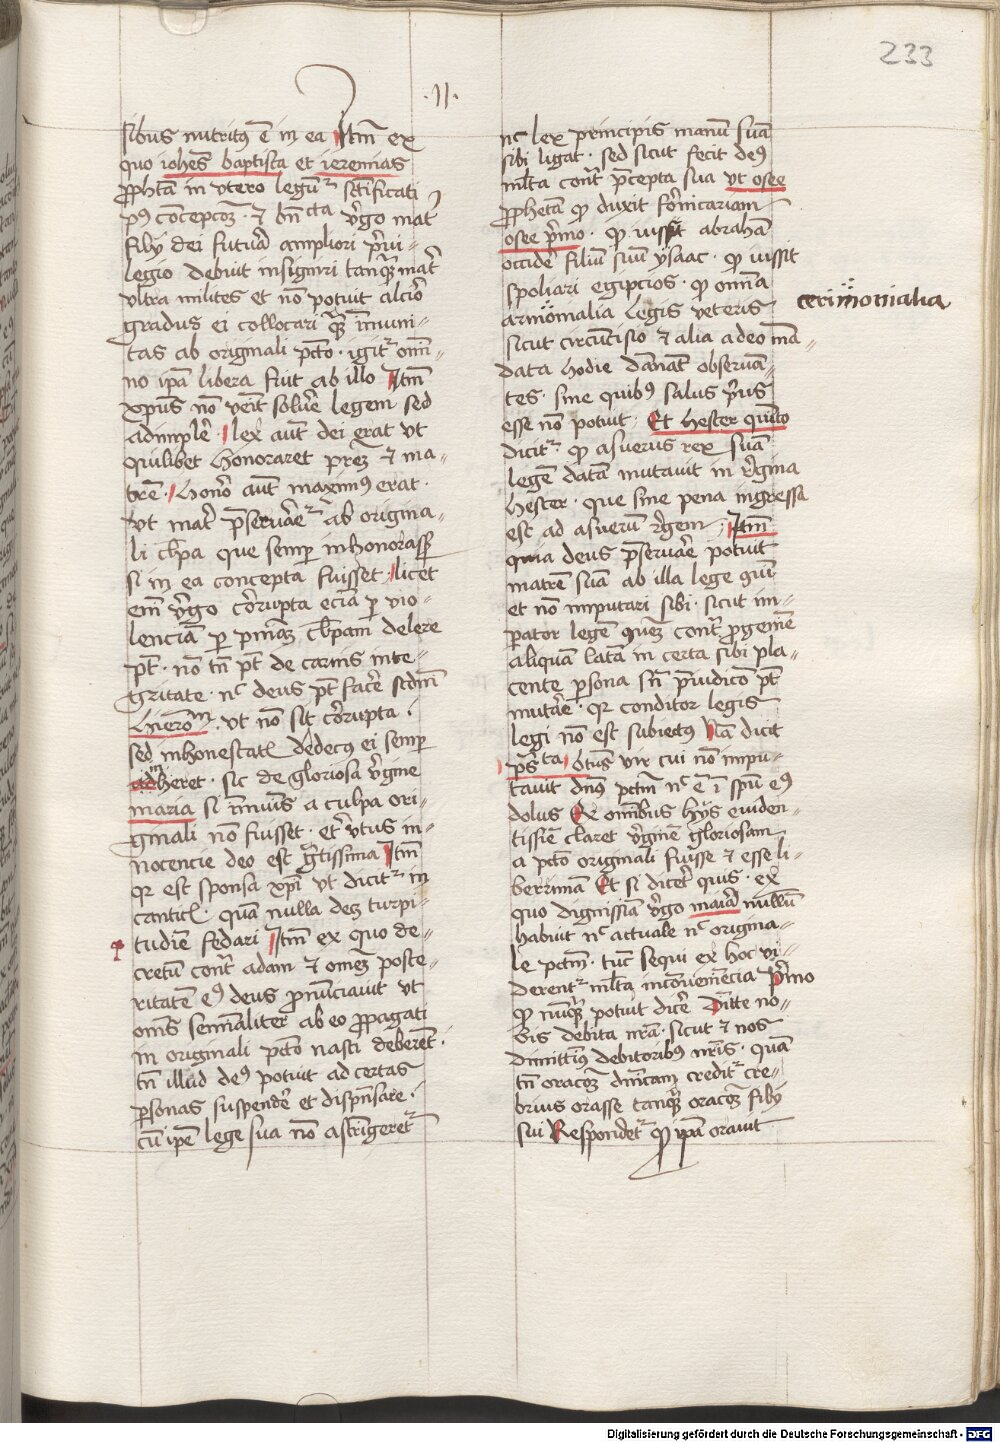 233
.11.
sibus nutritꝰ ē in ea Itm̄ ex
quo ioh̄es baptista et ieremias
ꝓph̄tā in vtero legūtʳ sc̄tificati
pꝰ concepcoꝫ · ⁊ bn̄cta v̓go mat̓
filij dei futura ampliori p̓ui⸗
legio debuit insigniri tanqꝫ mat̓
vltra milites et nō potuit alcio̓
gradus ei collocari qꝫ īmuni⸗
tas ab originali pc̄to · igitʳ om̄i⸗
no ipā libera fuit ab illo Itm̄
xpūs nō ven̄it solu̓e legem sed
adimple̓ · lex aut̄ dei erat vt
quilibet honoraret pr̄eꝫ ⁊ ma⸗
trē · honō aut̄ maximꝰ erat ·
vt mat̓ p̄seruare̓tʳ ab origina⸗
li cl̄pa que semꝑ inhonorassꝫ
si in ea concepta fuisset · licet
em̄ v̓go co̓rupta eciā ꝑ vio⸗
lenciā ꝑ pnīaꝫ cl̄pam̄ delere
pt̄ · nō tn̄ pt̄ de carnis inte⸗
gritate · nᶜ deus pt̄ fac̓e scdm̄
hierōm · vt nō sit co̓rupta ·
sed inhonestatꝭ dedecꝰ ei semꝑ
inheret · sic de gloriosa v̓gine
maria si īmunis a culpa ori⸗
ginali nō fuisset · et v̓tus in⸗
nocencie deo est g̓tissima Itm̄
qꝛ est sponsa xpī vt dicitʳ in
canticꝭ · quā nulla deꝫ turpi⸗
tudīe fedari Itm̄ ex quo de⸗
cretū cont̓ adam ⁊ omēꝫ poste⸗
ritatē eꝰ deus ꝓnūciauit vt
om̄s semīaliter ab eo ꝓpagati
in originali pc̄to nasci deberēt ·
tn̄ illud deꝰ potuit ad certas
ꝑsonas suspende̓ et dispn̄sare ·
cū ipē lege sua nō astringeretʳ
nᶜ lex principis manū suā
sibi ligat · sed sicut fecit deꝰ
ml̄ta cont̓ p̄cepta sua vt osee
ꝓphetā qꝫ duxit fo̓nicariam
osee p̓mo · qꝫ iussit abrahā
occide̓ filiū suū ysaac · qꝫ iussit
spoliari egipcios · qꝫ om̄ia
arimonialia legis veteris
sicut circūcisio ⁊ alia a deo mā⸗
data hodie dānāt obseruan⸗
tes · sine quibꝰ salus p̓us
esse nō potuit · Et hester quīto
dicitʳ · qꝫ asuerus rex suā
legē datā mutauit in r̓gina
hester · que sine pena ingressa
est ad asuerū r̓gem · Itm̄
quia deus p̄seruare̓ potuit
matrē suā ab illa lege gn̄i
et nō imputari sibi · sicut im⸗
ꝑator legē quēꝫ cont̓ ꝓgenīē
aliquā latā in certa sibi pla⸗
cente ꝑsona sn̄ p̄iudico pt̄
mutare̓ · qꝛ conditor legis
legi nō est subiectꝰ Ita dicit
ps̄ta Btūs vir cui nō impu⸗
tauit dn̄s pctm̄ nᶜ ē ī spū eꝰ
dolus Ex omībus hijs euiden⸗
tissīe claret v̓ginē gloriosam
a pc̄to originali fuisse ⁊ esse li⸗
berrimā Et si dicet̓ quis · ex
quo dignissīa v̓go maiā nullū
habuit nᶜ actuale nᶜ origina⸗
le pctm̄ · tūc sequi ex hoc vi⸗
derentʳ ml̄ta incōueniencia P̓mo
qꝫ nūqꝫ potuit dice̓ Dimitte no⸗
bis debita nr̄a · sicut ⁊ nos
dimittīꝰ debitoribꝰ nr̄is · quā
tn̄ oracoꝫ dn̄icam creditʳ cre⸗
brius orasse tanqꝫ oracoꝫ filij
sui Respondetʳ qꝫ ipā orauit
cerimonialia
Digitalisierung gefördert durch die Deutsche Forschungsgemeinschaft - DFG